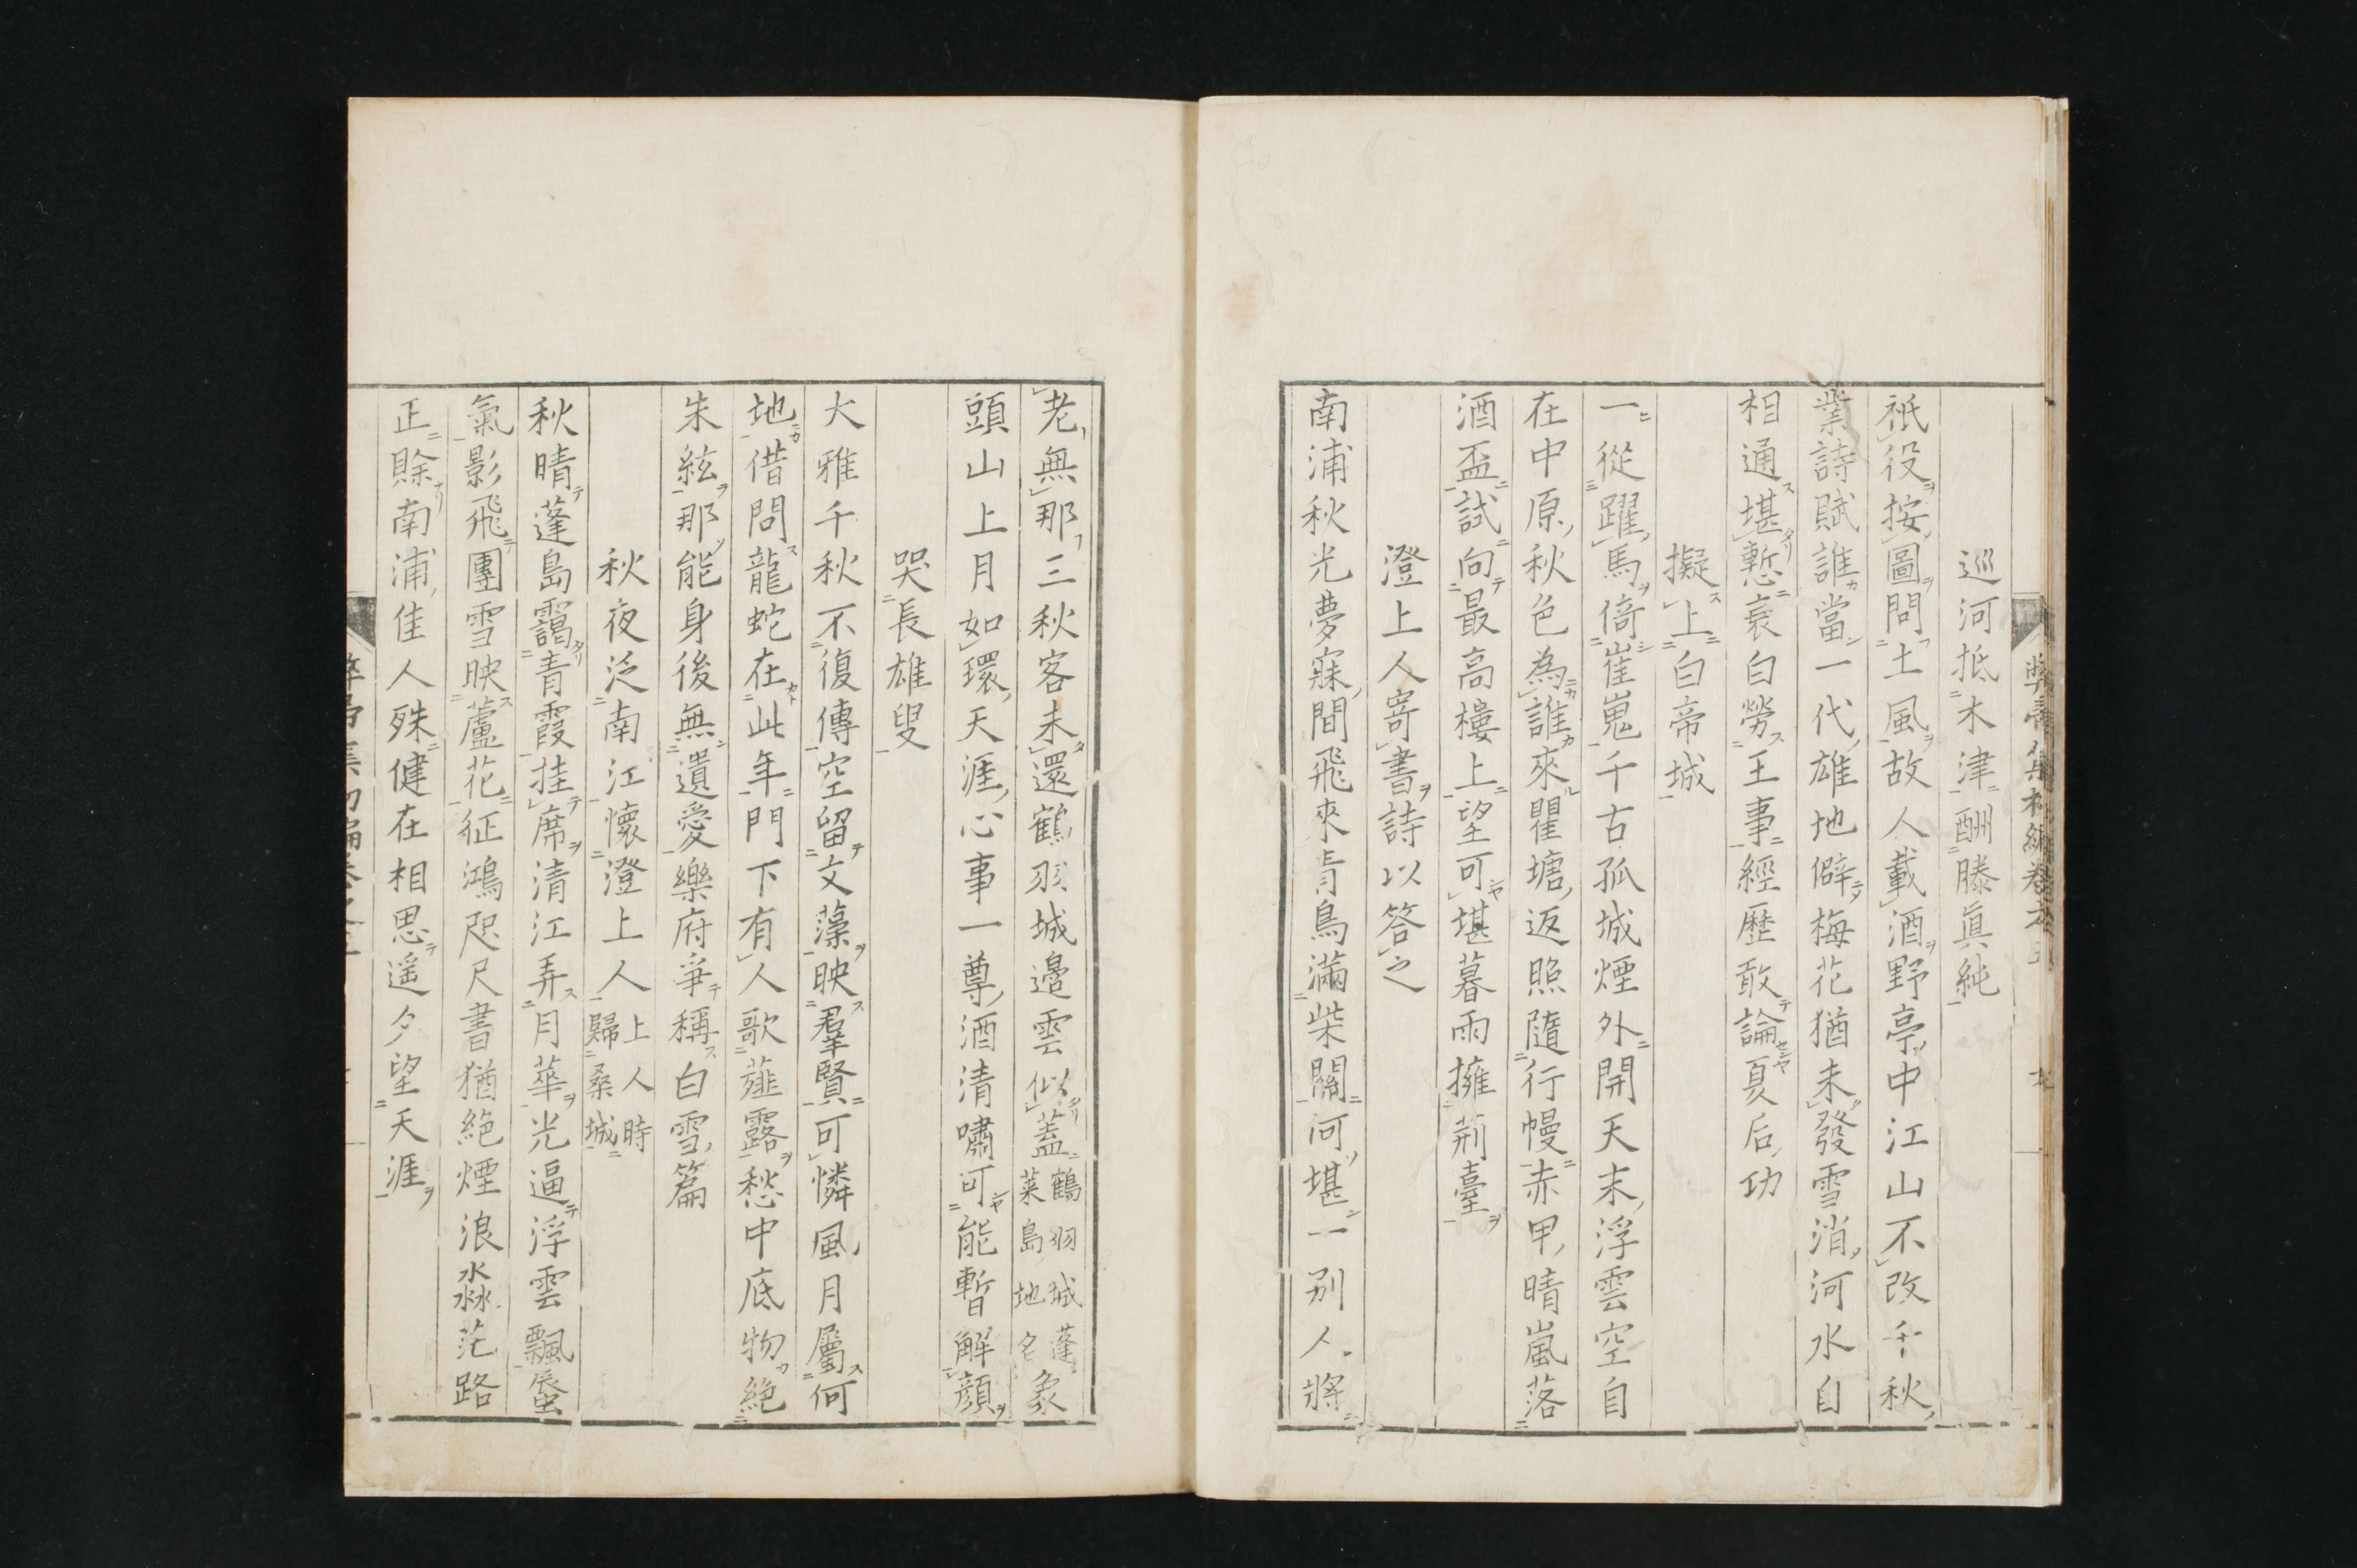 巡河抵木津酬滕眞純
祇役按圖問土風故人載酒野亭中江山不改千秋
業詩賦誰當一代雄地僻梅花猶未發雪消河水自
相通堪慙衰白勞王事經歷敢論夏后功
擬上白帝城
一從躍馬倚崔嵬千古孤城煙外開天末浮雲空自
在中原秋色為誰來瞿塘返照隨行幔赤甲晴嵐落
酒盃試向最高樓上望可堪暮雨擁荊臺
澄上人寄書詩以答之
南浦秋光夢寐間飛來青鳥滿柴關河堪一別人將
老無那三秋客未還鶴羽城邉雲似蓋鶴羽城蓬萊島地名象
頭山上月如環天涯心事一尊酒清嘯可能暫解顏
哭長雄叟
大雅千秋不復傳空留文藻映羣賢可憐風月屬何
地借問龍蛇在此年門下有人歌薤露愁中底物絶
朱絃那能身後無遺愛樂府爭稱白雪篇
秋夜泛南江懷澄上人上人時歸桑城
秋晴蓬島靄青霞挂席清江弄月華光逼浮雲飄蜃
氣影飛團雪映蘆花征鴻咫尺書猶絶煙浪淼茫路
正賖南浦佳人殊健在相思遥夕望天涯